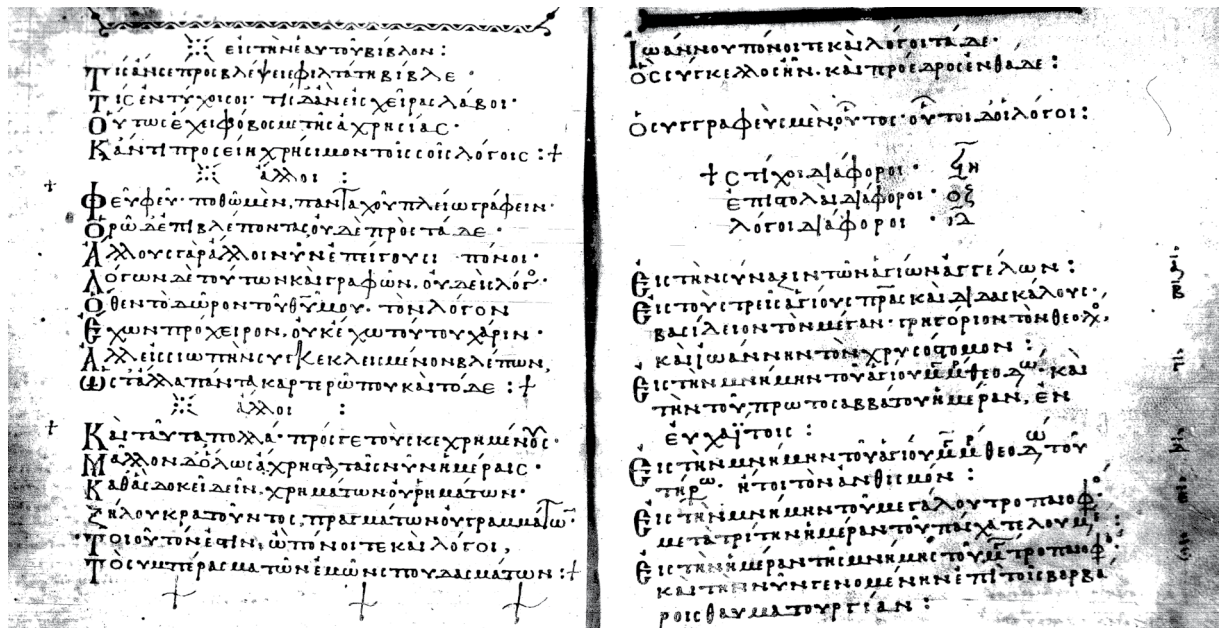 εἰς τὴν ἑαυτοῦ βίβλον :
Τίς ἄν σε προσβλέψειε φιλτάτη βίβλε ·
Τίς ἐντύχοι σοι· τίς δ' ἂν εἰς χεῖρας λάβοι ·
Οὕτως ἔχει φόβος με τῆς ἀχρηστίας ·
Κἂν τί προσείη χρήσιμον τοῖς σοῖς λόγοις : +
ἄλλοι :
Φεῦ φεῦ· ποθῶ μὲν, πανταχοῦ πλείω γράφειν ·
Ὁρῶ δ' ἐπιβλέποντας οὐδὲ πρὸς τάδε ·
Ἄλλους γὰρ ἄλλοι νῦν ἐπείγουσι πόνοι ·
Λόγων δὲ τούτων καὶ γραφῶν, οὐδεὶς λόγο ·
Ὅθεν τὸ δῶρον τοῦ θυμου· τὸν λόγον
Ἔχων πρόχειρον, οὐκ ἔχω τούτου χάριν ·
Ἀλλ' εἰς σιωπὴν συγκεκλεισμένον βλέπων,
Ὡς τἄλλα πάντα καρτερῶ που καὶ τόδε : +
ἄλλοι :
Καὶ ταῦτα πολλά· πρός γε τοὺς κεχρημένους ·
Μᾶλλον δ' ὅλως ἄχρηστα ταῖς νῦν ἡμέραις ·
Καθ' ἃς δοκεῖ δεῖν, χρημάτων οὐ ῥημάτων ·
Ζήλου κρατοῦντος, πραγμάτων οὐ γραμμάτων ·
Τοιοῦτον ἐστὶν, ὦ πόνοι τε καὶ λόγοι,
Τὸ συμπέρασμα τῶν ἐμῶν σπουδασμάτων : +
Ἰωάννου πόνοι τε καὶ λόγοι τάδε ·
ὃς σύγκελλος ἦν· καὶ πρόεδρος ἐνθάδε :
ὁ συγγραφεὺς μὲν, οὗτος· οὗτοι δ' οἱ λόγοι :
+ στίχοι διάφοροι ·
ἐπιστολαὶ διάφοροι · οζ
λόγοι διάφοροι · ιδ
Εἰς τὴν σύναξιν τῶν ἁγίων ἀγγέλων :
Εἰς τοὺς τρεῖς ἁγίους πρας καὶ διδασκάλους ·
βασίλειον τὸν μέγαν· γρηγόριον τὸν θεολο,
καὶ ἰωάννην τὸν χρυσόστομον :
Εἰς τὴν μνήμην τοῦ ἁγίου μεγαλομρ θεοδώ· καὶ
τὴν τοῦ πρωτοσαββάτου ἡμέραν, ἐν
εὐχαΐτοις :
Εἰς τὴν μνήμην τοῦ ἁγίου μεγαλομρ θεοδώ τοῦ
τήρω· ἤτοι τὸν ἀνθισμόν :
Εἰς τὴν μνήμην τοῦ μεγάλου τροπαιοφό·
μετὰ τρίτην ἡμέραν τοῦ πάσχα τελουμ :
Εἰς τὴν ἡμέραν τῆς μνήμης τοῦ μεγ τροπαιοφό·
καὶ τὴν νῦν γενομένην ἐπὶ τοῖς βαρβά
ροις θαυματουργίαν :